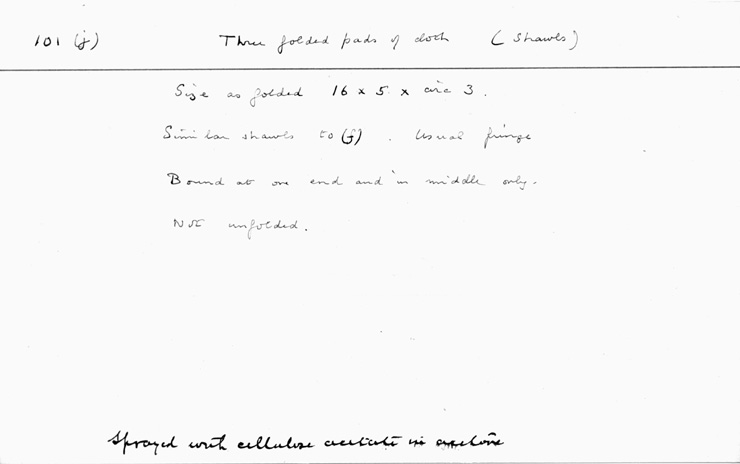 101 (j) Three folded pads of cloth (Shawls)
Size as folded 16 x 5 x circ 3.
Similar shawls to (f). Usual fringe
Bound at one end and in middle only.
Not unfolded.
Sprayed with cellulose acetate in acetone